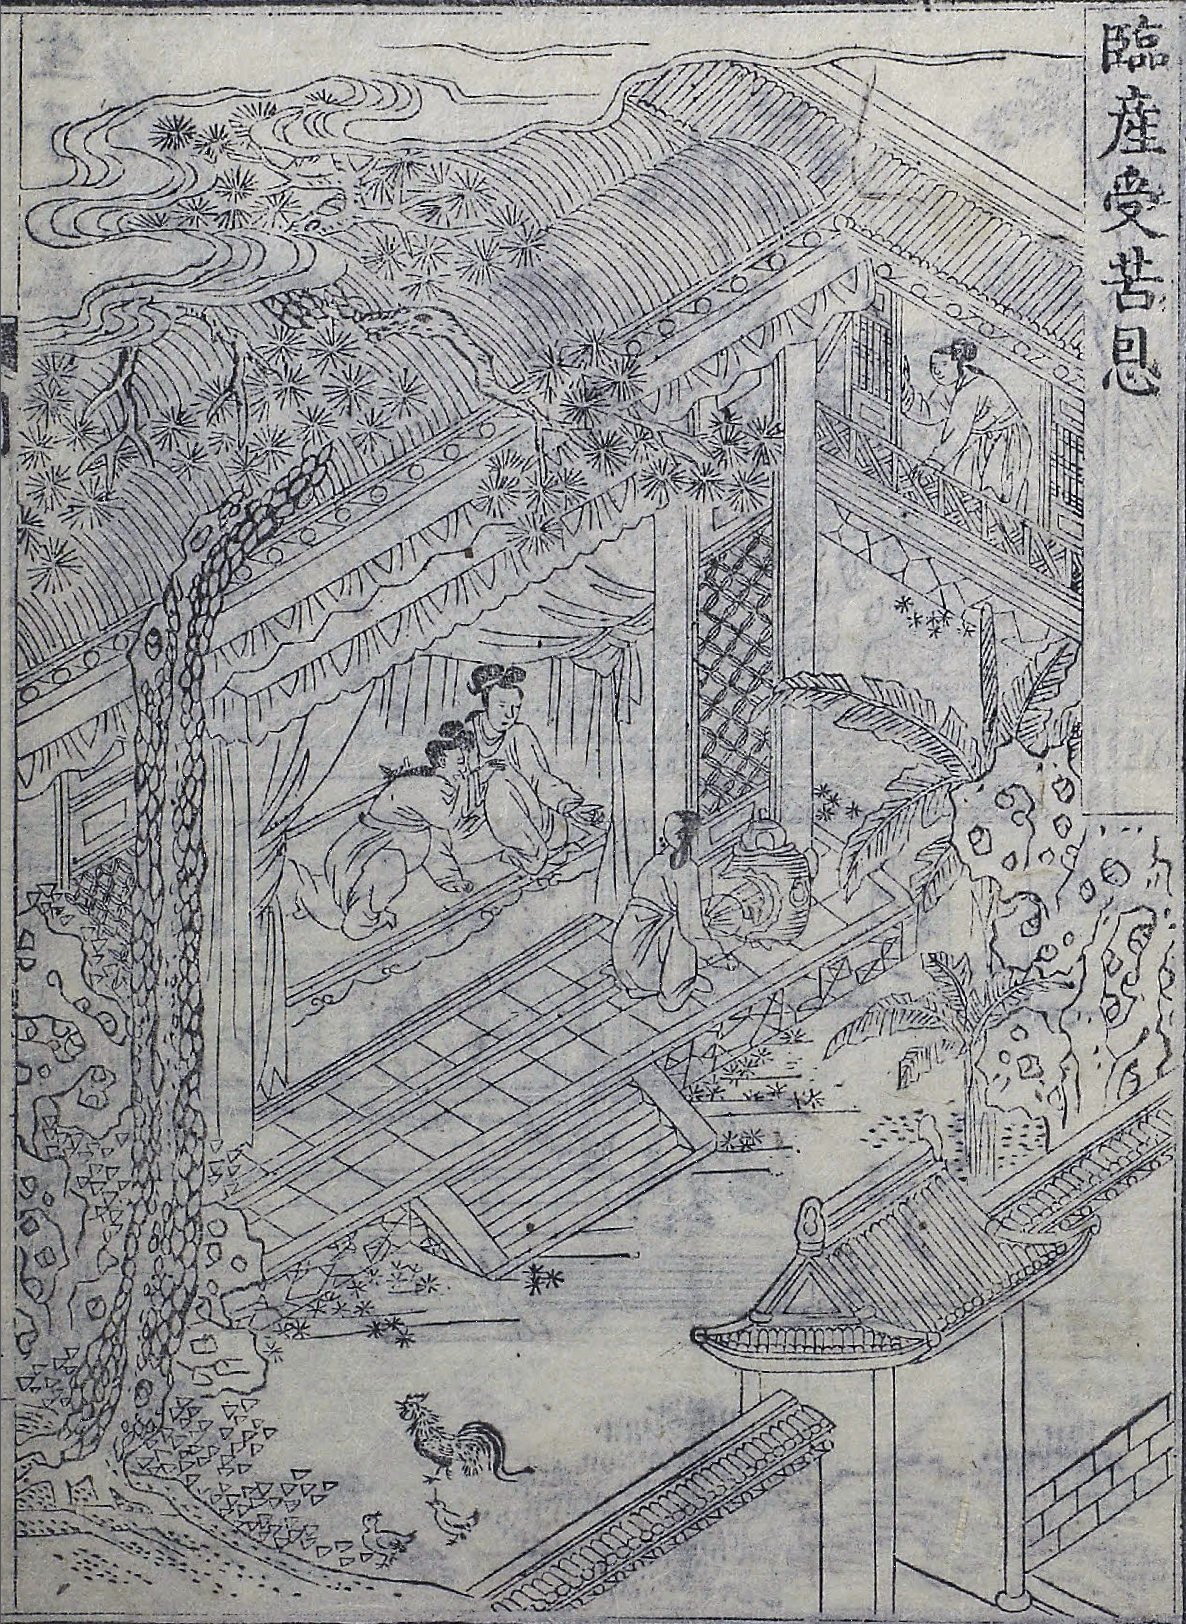 臨産受苦恩